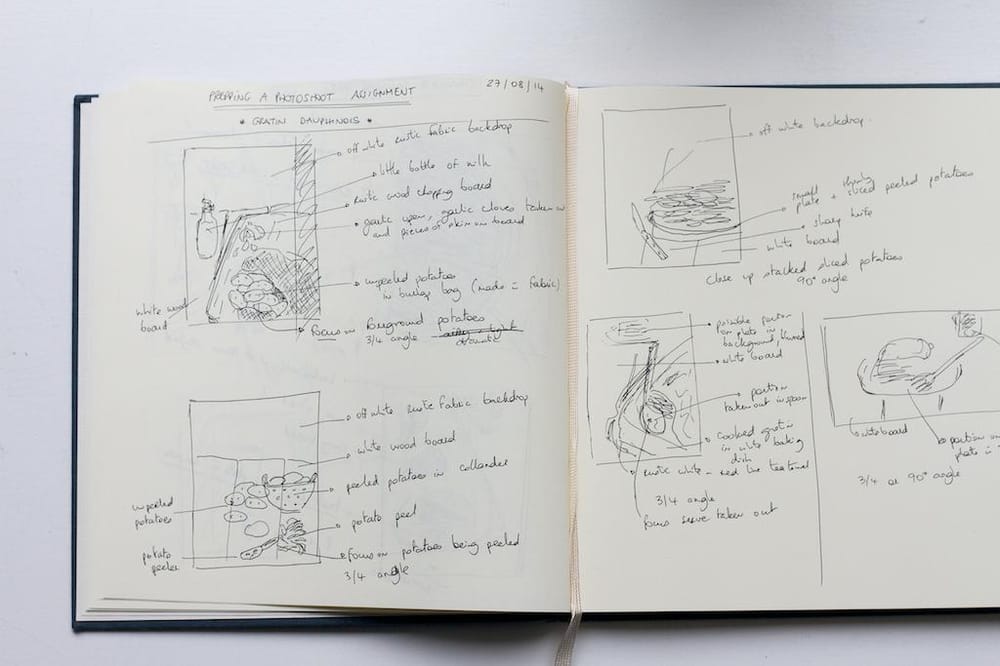 27/08/14
PREPPING A PHOTOSHOOT ASSIGNMENT
* GRATIN DAUPHINOIS *
off white rustic fabric backdrop
little bottle of milk
rustic wood chopping board
garlic open, garlic cloves taken out
and pieces of skin on board
unpeeled potatoes
in burlap bag (made = fabric)
white wood
board
focus on foreground potatoes
3/4 angle
off white rustic fabric backdrop
white wood board
peeled potatoes in collander
unpeeled
potatoes
potato peel
potato
peeler
focus on potatoes being peeled
3/4 angle
off white backdrop
small thinly
plate + sliced peeled potatoes
sharp knife
white board
close up stacked sliced potatoes
90° angle
possible portion
on plate in
background, blurred
white board
portion
taken out in spoon
cooked gratin
in white baking
dish
rustic white - red line teatowel
3/4 angle
focus serve taken out
white board
portion on
plate in
3/4 or 90° angle